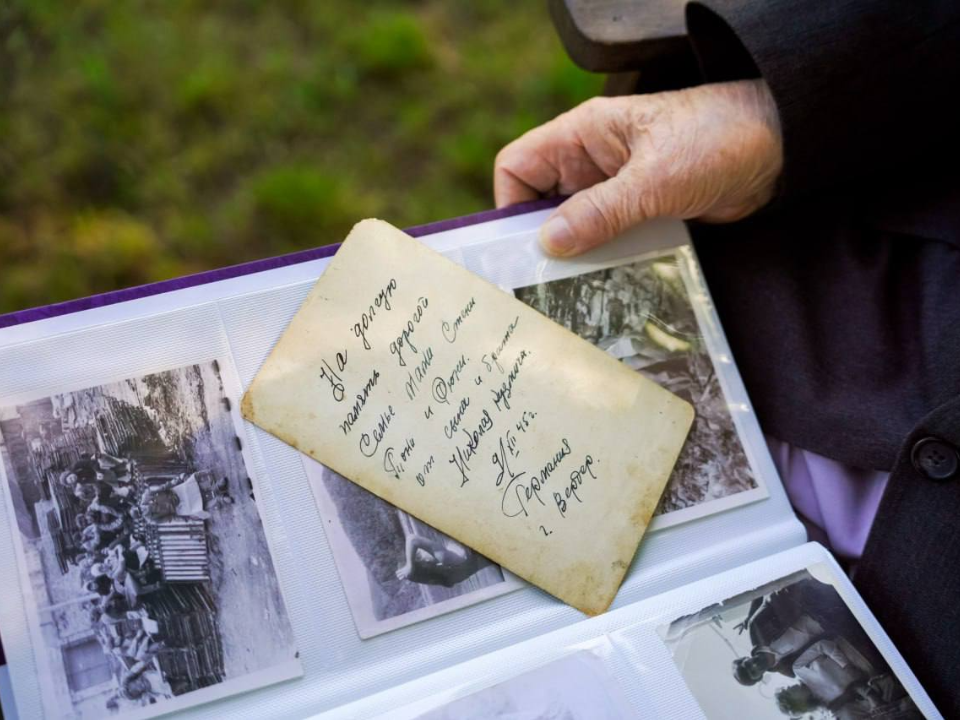 На долгую
память дорогой
Семье Мани Стени
Тюни и Фюти.
от сына и брата
Николая Кузмича.
XII 45 г.
Германия
г. Вердер.